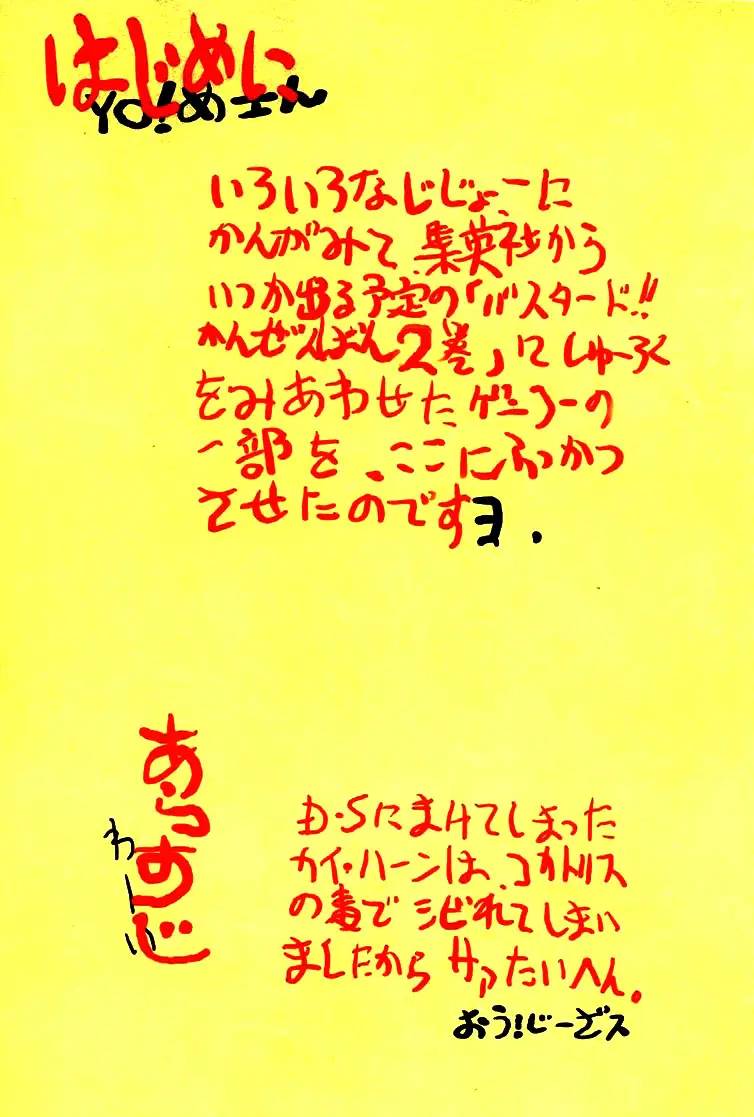 はじめに
YO!めーん
いろいろなじじょーに
かんがみて、集英社から
いつか出る予定の「バスタード!!
かんぜんばん2巻」にしゅーろく
をみあわせたゲンコーの
一部を、ここにふっかつ
させたのですヨ.
あらすじ
D・Sにまけてしまった
カイ・ハーンは、コカトリス
の毒でシビれてしまい
ましたからサァたいへん。
おう!じーざス